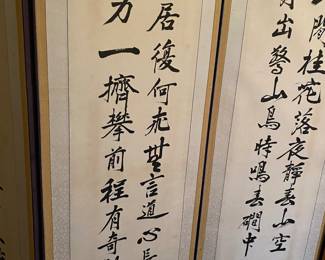 閒桂花落夜靜春山空
出驚山鳥時鳴春澗中
居復何無言道心長
力一擠攀前程有奇